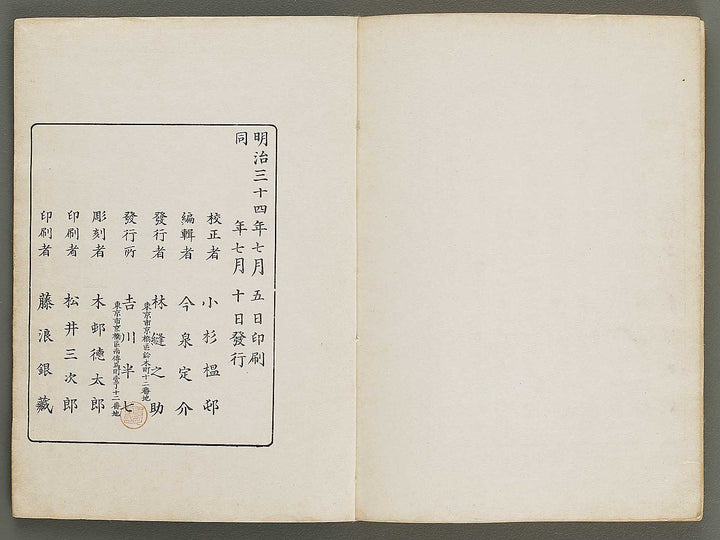 明治三十四年七月五日印刷
同年七月十日發行
校正者 小杉榲邨
編輯者 今泉定介
發行者 林縫之助
東京市京橋區鈴木町十二番地
發行所 吉川半七
東京市京橋區南傳馬町壹丁目十二番地
彫刻者 木邨德太郎
印刷者 松井三次郎
印刷者 藤浪銀藏